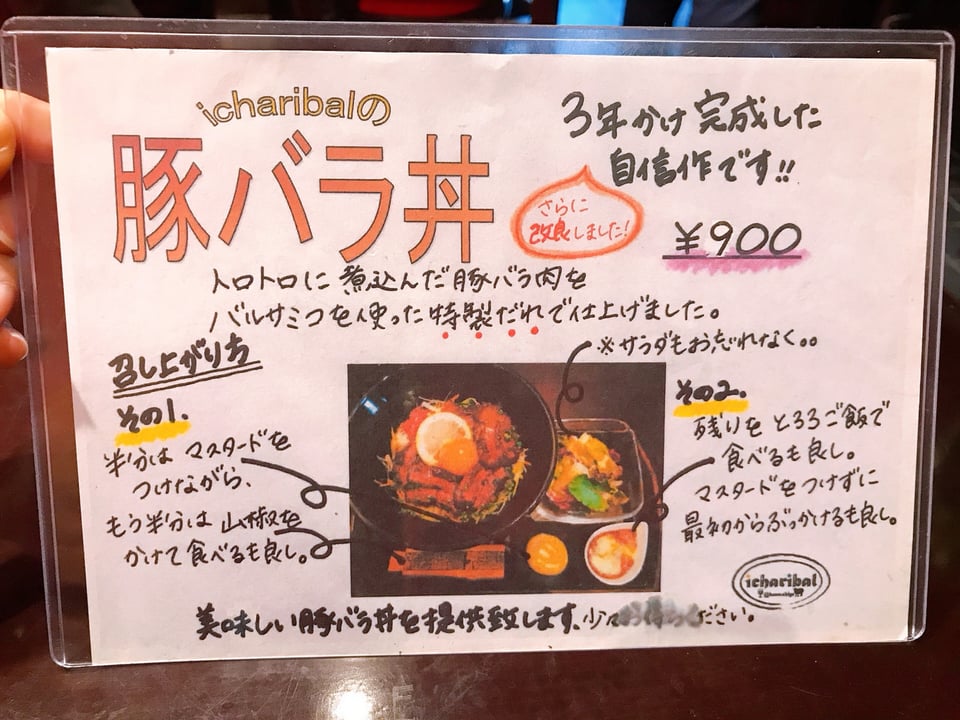 icharibalの
豚バラ丼
3年かけ完成した
自信作です!!
さらに
改良しました!
¥900
トロトロに煮込んだ豚バラ肉を
バルサミコを使った特製だれで仕上げました。
※サラダもお忘れなく。。
召し上がり方
その1.
半分はマスタードを
つけながら、
もう半分は山椒を
かけて食べるも良し。
その2.
残りをとろろご飯で
食べるも良し。
マスタードをつけずに
最初からぶっかけるも良し。
icharibal
美味しい豚バラ丼を提供致します、少々お待ちください。